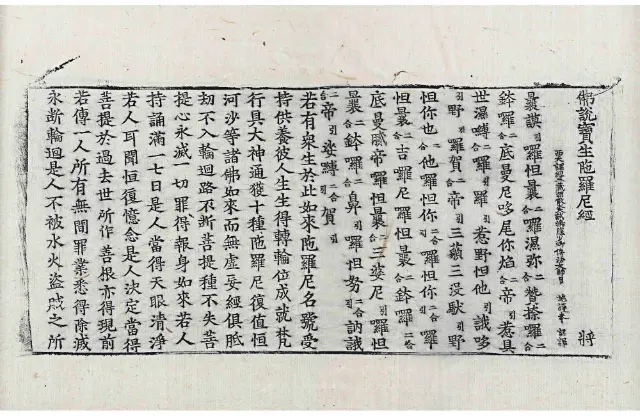 佛說寶生陁羅尼經 將
詔譯
曩謨引囉怛曩二合囉濕弭二合贊捺囉二合
鉢囉二合底曼尼哆尾你焰二合帝引惹具
世濕嚩二合囉引囉引惹野怛他引誐哆
引野囉賀二合帝引三藐三沒馱引野
怛你也二合他囉怛你二合囉怛你二合囉
怛曩二合吉囉尼囉怛曩二合鉢囉二合
底曼膩帝囉怛曩二合三婆尼囉怛
曩二合鉢囉二合鼻引囉怛努二合訥誐
二合帝引娑嚩二合賀引
若有衆生於此如來陁羅尼名號受
持供養彼人生生得轉輪位成就梵
行具大神通獲十種陁羅尼復值恒
河沙等諸佛如來而無虛妄經俱胝
刼不入輪迴路不斷菩提種不失菩
提心永滅一切罪得報身如來若人
持誦滿一七日是人當得天眼清淨
若人耳聞恒復憶念是人決定當得
菩提於過去世所作善根亦得現前
若傳一人所有無間罪業悉得除滅
永斷輪迴是人不被水火盜賊之所